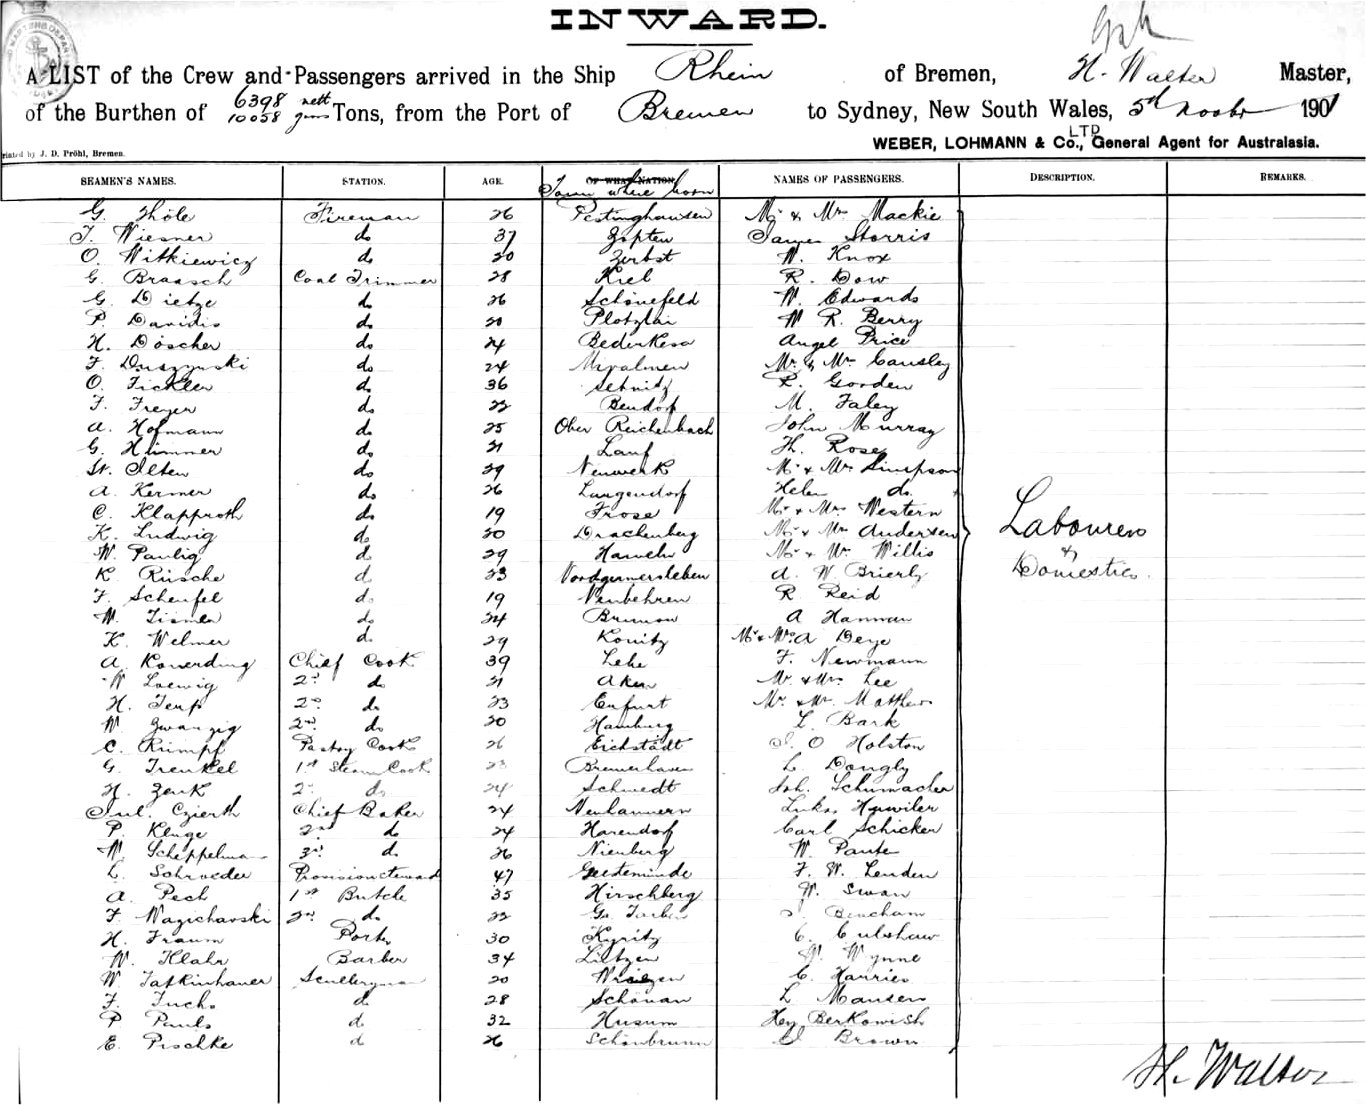 INWARD.
A LIST of the Crew and Passengers arrived in the Ship Rhein of Bremen, H. Walter Master,
of the Burthen of 6398 nett 10058 gross Tons, from the Port of Bremen to Sydney, New South Wales, 5th Novbr 1901
WEBER, LOHMANN & Co., LTD General Agent for Australasia.
Printed by J. D. Pröhl, Bremen.
SEAMEN'S NAMES. STATION. AGE. OF WHAT NATION Town where born NAMES OF PASSENGERS. DESCRIPTION. REMARKS.
G. Thöle Fireman 26 Pestinghausen Mr & Mrs Mackie
J. Wiesner do 37 Zopten James Storris
O. Witkiewicz do 20 Zerbst W. Knox
G. Braasch Coal Trimmer 28 Kiel R. Dow
G. Dietze do 26 Schönefeld W. Edwards
P. Davidis do 20 W R. Berry
H. Döscher do 24 Bederkesa Angel Price
F. Duszynski do 24 Mr & Mrs Causley
O. Fickler do 36 R. Gorden
F. Freyer do 22 Bendorf M. Faley
A. Hofmann do 25 Ober Reichenbach John Murray
G. Hümmer do 21 Lauf Th. Rose
St. Ilten do 29 Neuwerk Mr & Mrs Simpson
A. Kermer do 26 Langendorf Helen do
C. Klapproth do 19 Frose Mr & Mrs Western
K. Ludwig do 20 Drachenberg Mr & Mrs Andersen
W. Paulig do 29 Hameln Mr & Mrs Willis
K. Rüsche do 23 Nordgermersleben A. W Brierly
F. Scheufel do 19 Neubehren R Reid
W. Tismer do 24 Brunow A Hannan
K. Welmer do 29 Konitz Mr & Mrs A Deye
A. Konerding Chief Cook 39 Lehe F. Newmann
W Loewig 2d do 21 Aken Mr & Mrs Lee
H. Tenp 2nd do 23 Erfurt Mr & Mrs Matthew
W Zwanzig 2nd do 20 Hamburg L. Bark
C. Rümpf Pastry Cook 26 Eichstädt O Holston
G. Trenkel 1st Steam Cook 23 Bremerhaven L. Dongly
H. Zenk 2d do 24 Schwedt Joh. Schumacher
Jul. Czierth Chief Baker 24 Neuhammern Lukas Huwiler
P. Kluge 2nd do 24 Harendorf Carl Schicker
W. Scheppelman 3rd do 26 Nienburg W. Paute
L. Schroeder Provisionsteward 47 Geestemünde F. W. Lenden
A. Pech 1st Butche 35 Hirschberg W. Swan
F. Wazichavski 2nd do 22 Gr. Tarben Beacham
H. Traum Porter 30 Kyritz C. Culshaw
W. Klahr Barber 34 Lietzen W. Wynne
W. Tafkinhauer Sculleryman 20 Wriezen C. Harries
F. Fuchs d 28 Schönau L Mansen
P Pauls d 32 Husum Hey Berkowish
E. Pischke d 26 Schönbrunn Brown
Labourers
&
Domestics.
H. Walter